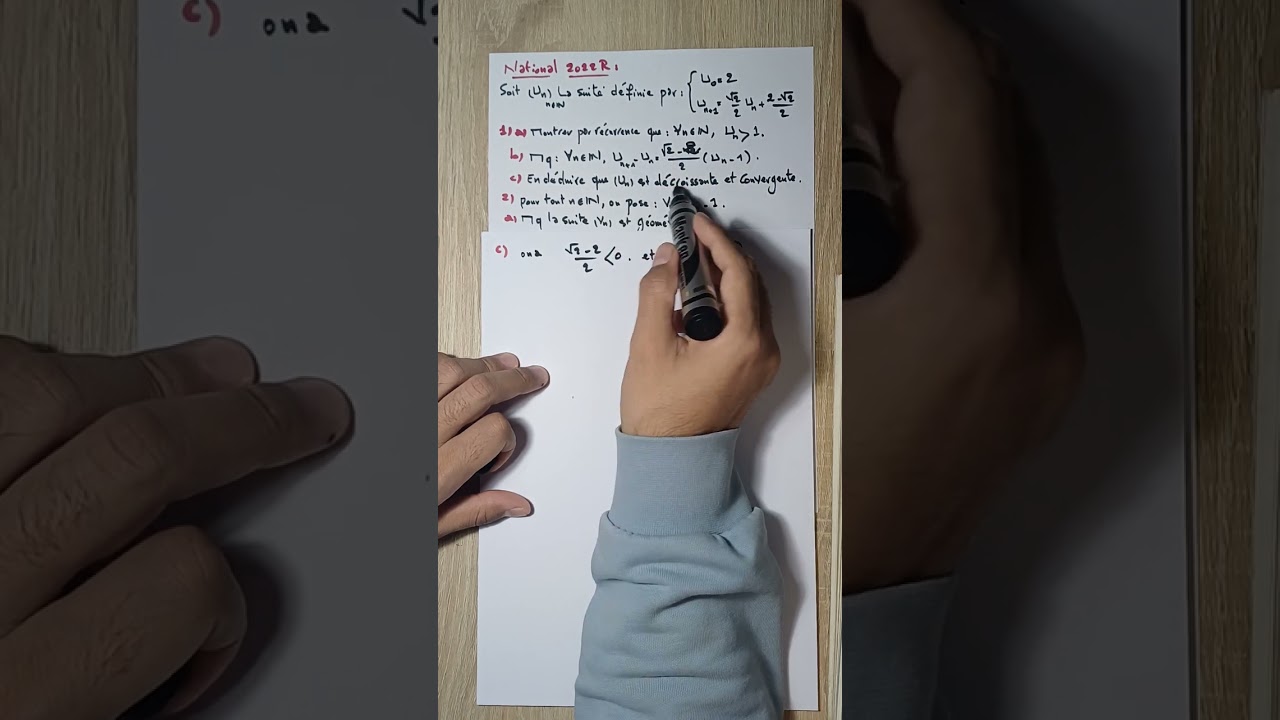 National 2022R:
Soit (Un)n∈IN la suite définie par: { U0=2
Un+1=√2/2 Un+2-√2/2
1) a) Montrer par récurrence que: ∀n∈IN, Un>1.
b) Mq: ∀n∈IN, Un+1-Un=√2-2/2(Un-1).
c) En déduire que (Un) est décroissante et convergente.
2) pour tout n∈IN, on pose: V 1.
a) Mq la suite (Vn) est géomé
c) ona √2-2/2<0. et
c) ona